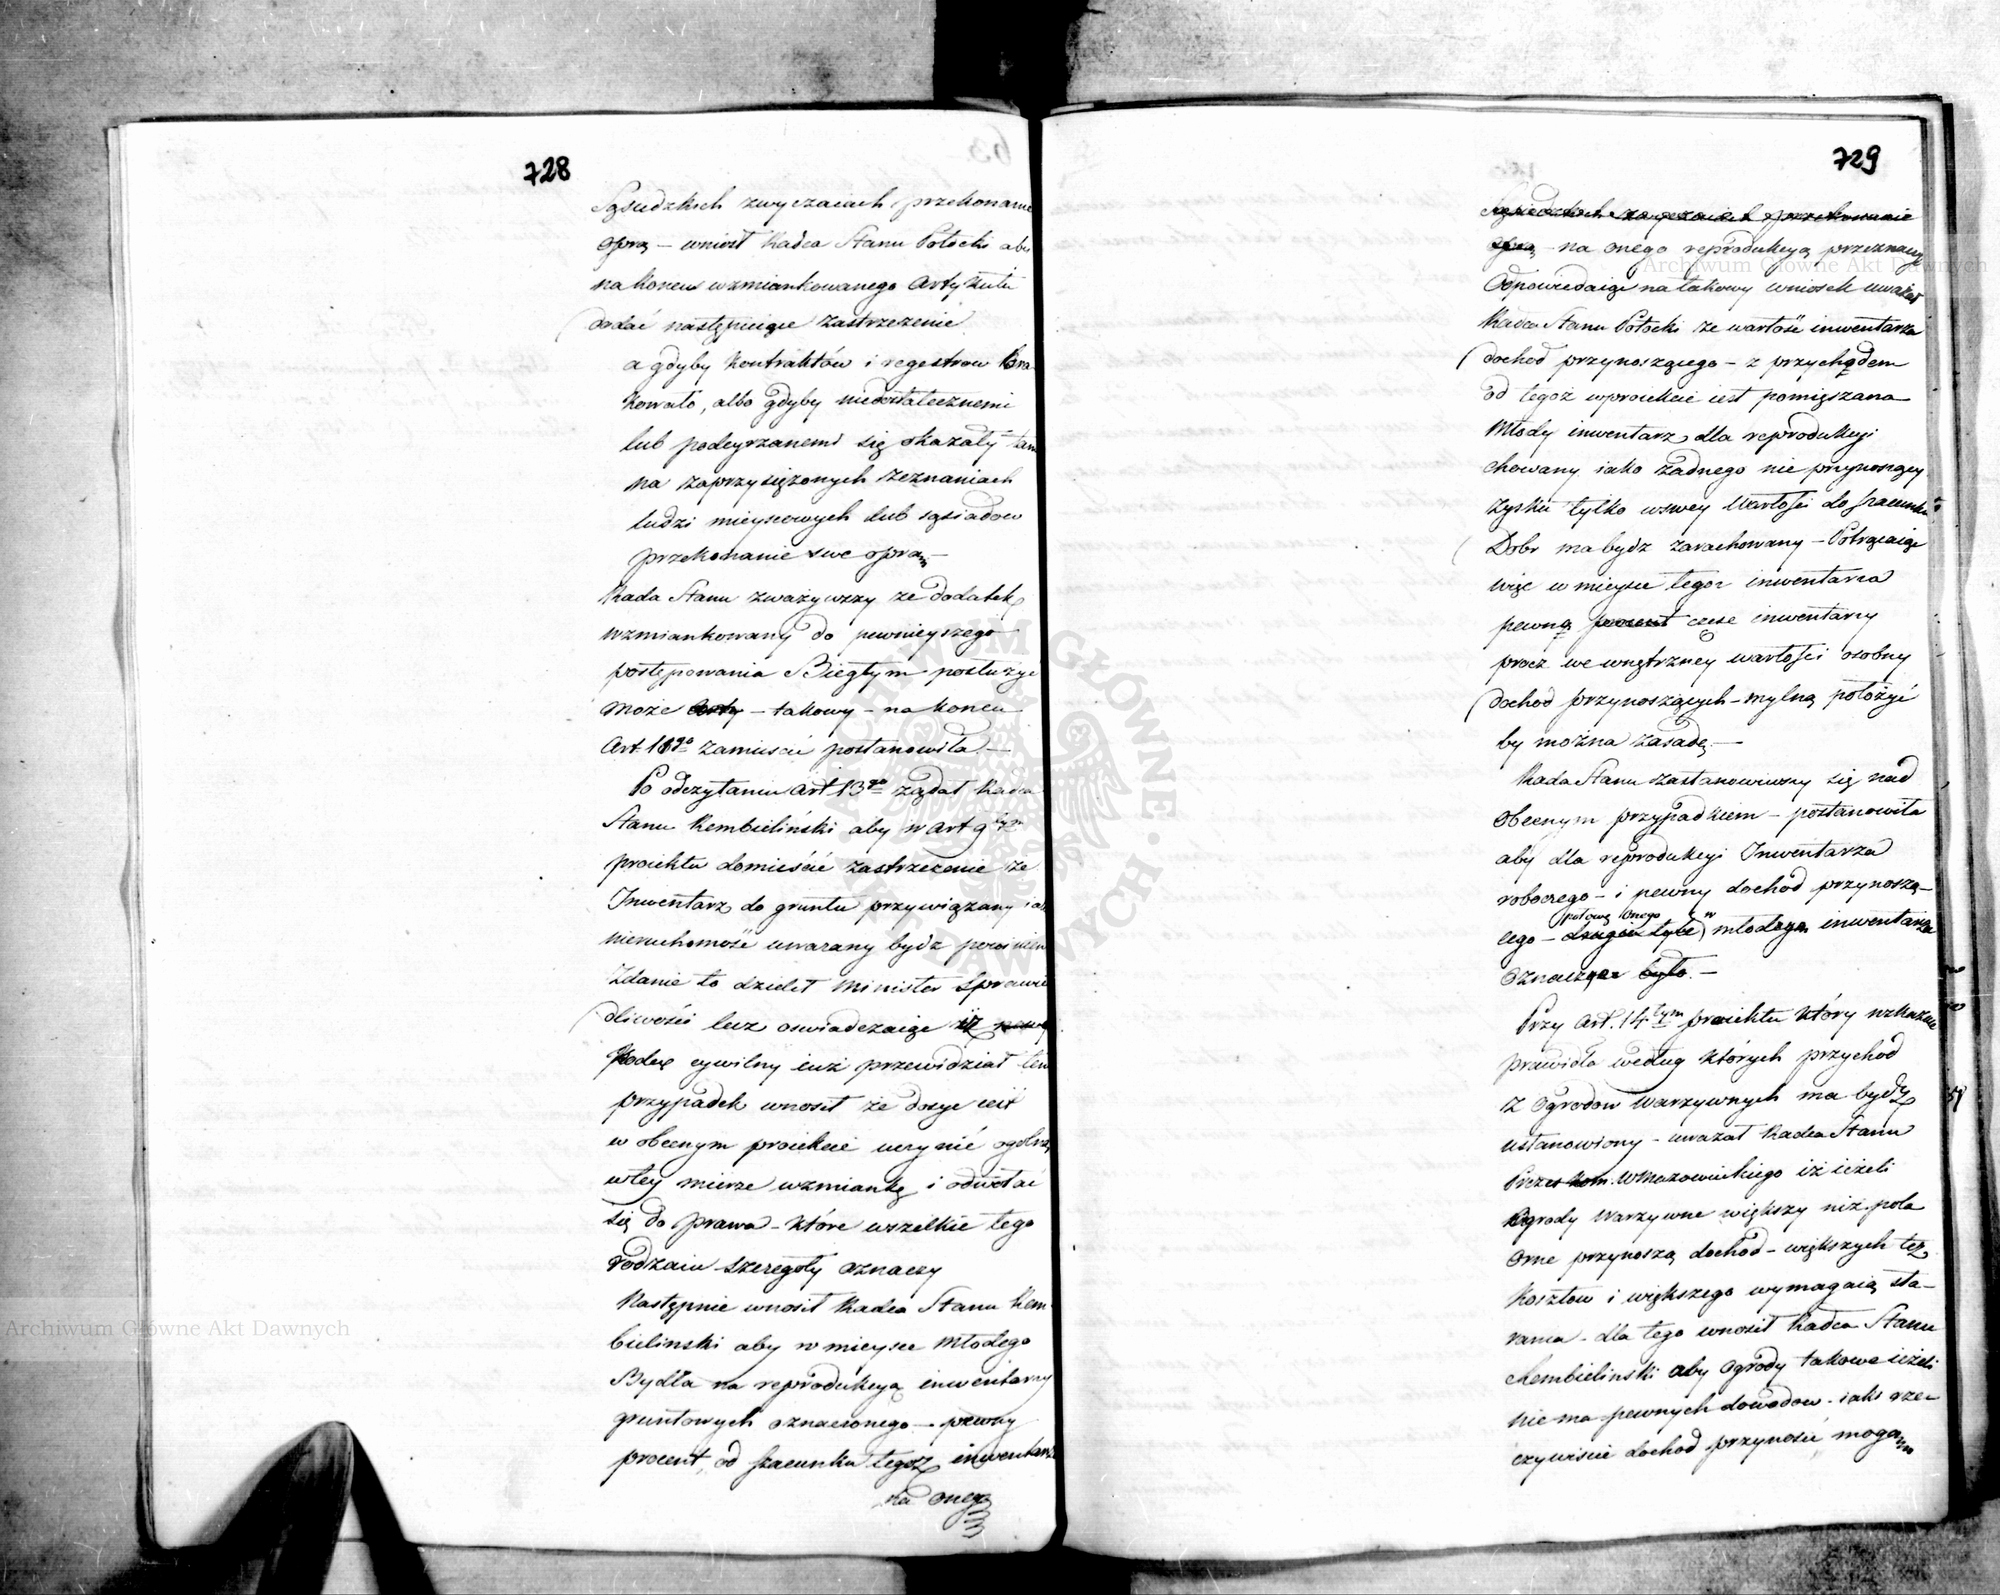 728
Sąsiedzkich zwyczaiach przekonanie
oprą – wniosł Radca Stanu Potocki aby
na koncu wzmiankowanego Artykułu
dodać następuiące zastrzeżenie
a gdyby kontraktów i regestrow bra-
kowało, albo gdyby niedostatecznemi
lub podeyrzanemi się okazały tam
na zaprzysiężonych zeznaniach
ludzi mieyscowych lub sąsiadow
przekonanie swe oprą –
Rada Stanu zważywszy że dodatek
wzmiankowany do pewnieyszego
postępowania Biegłym posłużyć
może – takowy – na koncu
Art. zamieścić postanowiła. –
Po odczytaniu Art 13go żądał Radca
Stanu Rembieliński aby w art 9tym
proiektu domieścić zastrzeżenie że
Inwentarz do gruntu przywiązany iak
nieruchomość uwazany bydz powinien
Zdanie to dzielił Minister Sprawie
dliwości lecz oswiadczaiąc iż
Kodex cywilny iuż przewidział ten
przypadek wnosił że dosyc iest
w obecnym proiekcie uczynić ogolną
w tey mierze wzmiankę i odwołać
się do prawa – które wszelkie tego
rodzaiu szeregoły oznaczy
Następnie wnosił Radca Stanu Rem-
bielinski aby w mieysce młodego
Bydła na reprodukcyą inwentarzy
gruntowych oznaczonego – pewny
procent, od szacunku tegoż inwentarza
na onego
729
Sąsiedzkich zwyczaiach przekonanie
oprą – na onego reprodukcyą przeznaczyć
Odpowiedaiąc na takowy wniosek uważał
Radca Stanu Potocki że wartość inwentarza
dochod przynoszącego – z przychodem
od tegoż w proiekcie iest pomięszana
Młody inwentarz dla reprodukcyi
chowany iako żadnego nie przynoszący
zysku tylko w swey wartości do szacunku
Dobr ma bydz zarachowany – Potrącaiąc
więc w mieysce tegoz inwentarza
pewną procent część inwentarzy
procz wewnętrzney wartości osobny
dochod przynoszących – mylną położyć
by można zasadę –
Rada Stanu zastanowiwszy się nad
obecnym przypadkiem – postanowiła
aby dla reprodukcyi Inwentarza
roboczego – i pewny dochod przynoszą-
połowę onego w
cego – drugie tyle młodym inwentarzu
było. –
Przy Art. 14tym proiektu który wskazuie
prawidła według których przychod
z Ogrodow Warzywnych ma bydz
ustanowiony – uważał Radca Stanu
Prezes Kom. W Mazowieckiego iż ieżeli
Ogrody Warzywne większy niż pola
orne przynoszą dochod – większych też
kosztow i większego wymagaią sta-
rania – dla tego wnosił Radca Stanu
Rembielinski aby Ogrody takowe ieżeli
nie ma pewnych dowodow – iaki rze-
czywiscie dochod przynosić mogą